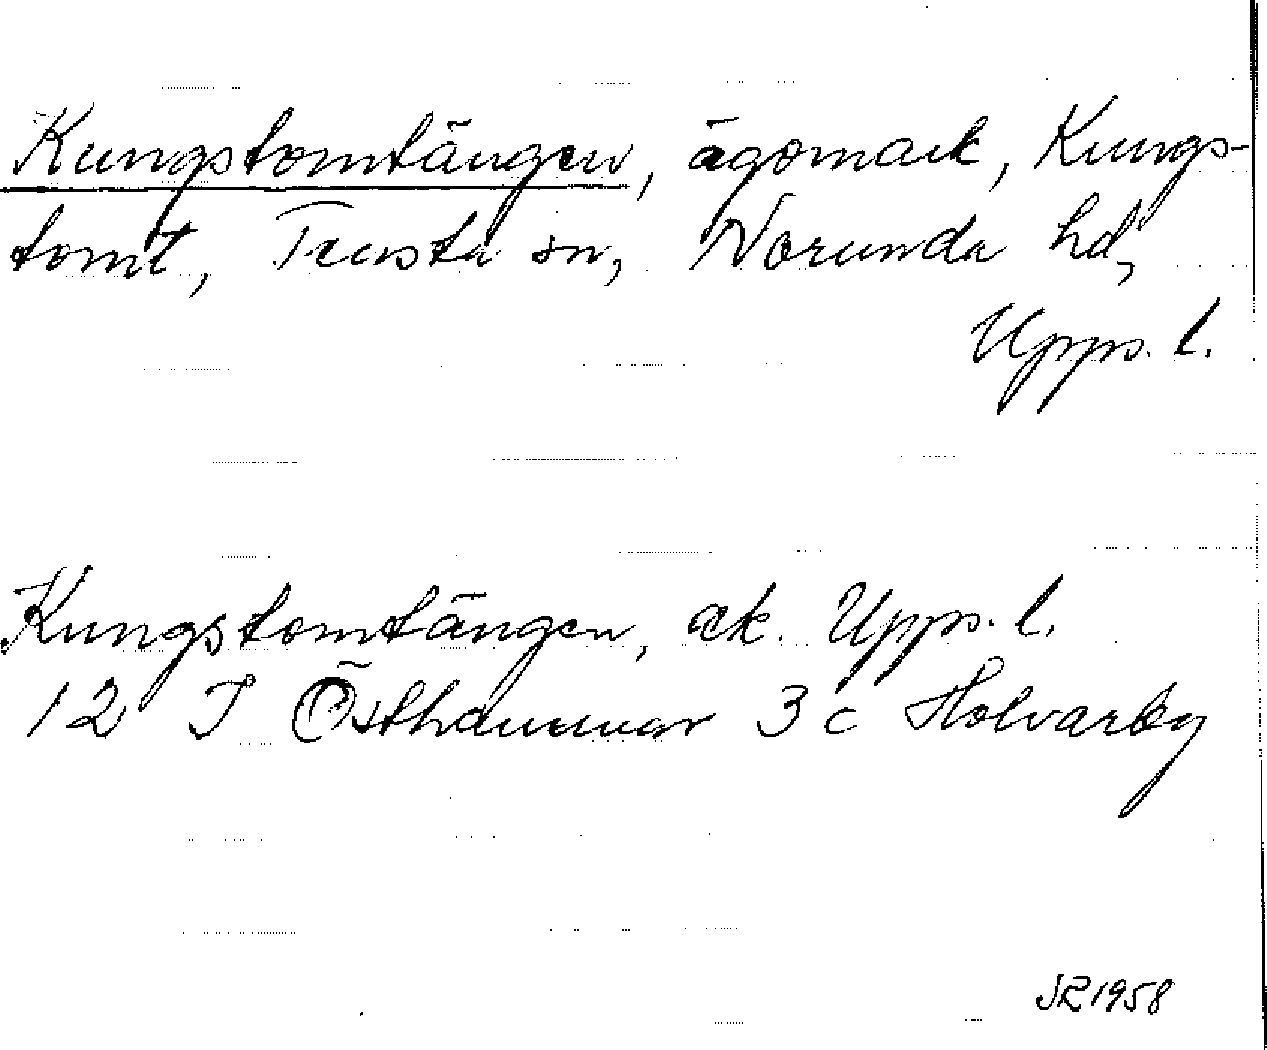 Kungstomtängen, ägomark, Kungs-
tomt, Tensta sn, Norunda hd,
Upps. l.
Kungstomtängen, ek. Upps. l.
12 I Östhammar 3 c Holvarby
1958